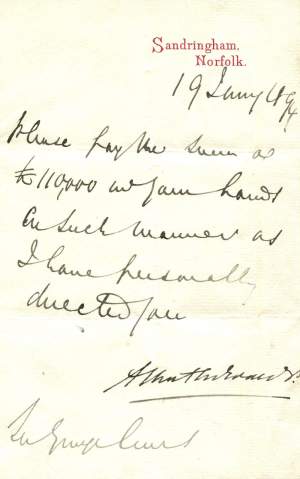 Sandringham,
Norfolk.
19 Jany 1894
Please pay the sum of
£110,000 in your hands
in such manner as
I have personally
directed you
Albert Edward P.
Sir George Lewis